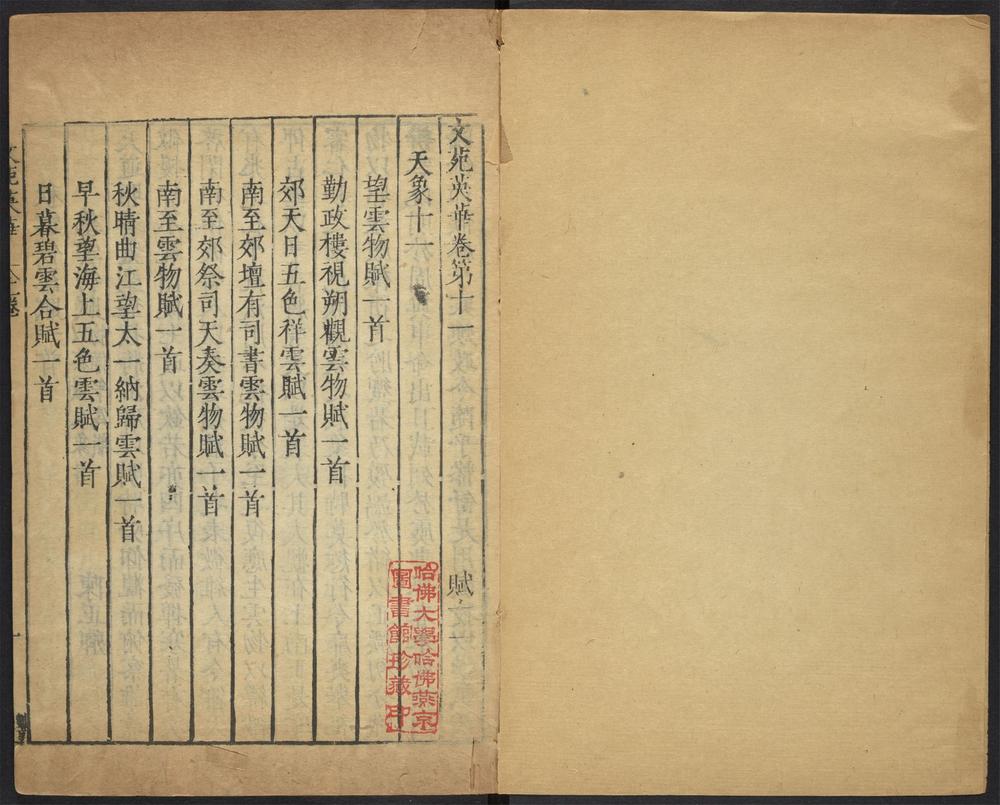 文苑英華卷第十一 賦
天象十一
望雲物賦一首
勤政樓視朔觀雲物賦一首
郊天日五色祥雲賦一首
南至郊壇有司書雲物賦一首
南至郊祭司天奏雲物賦一首
南至雲物賦一首
秋晴曲江望太一納歸雲賦一首
早秋望海上五色雲賦一首
日暮碧雲合賦一首
文苑英華
卷
一
哈佛大學哈佛燕京
圖書館珍藏印